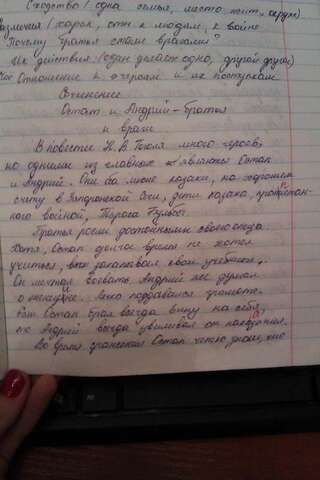 Сходство (одна семья, место жит.,
Различия (харак., отн. к людям, к войне
Почему братья стали врагами?
Их действия (один делает одно, другой другое)
Отношение к героям и их поступкам
Сочинение
Остап и Андрий – братья
и враги
В повести Н. В. Гоголя много героев,
но одними из главных являются Остап
и Андрий. Они оба казаки, на хорошем
счету в Запорожской Сечи, дети казака,
ного войной, Тараса Бульбы.
Братья росли достойными своего отца.
Хотя, Остап долгое время не хотел
учиться, закапывал свои учебники,
Он мечтал воевать, Андрий же думал
о легко поддавался грамоте.
Остап брал всегда вину на себя,
но Андрий всегда увиливал от наказания.
Во время сражения Остап четко знал, что